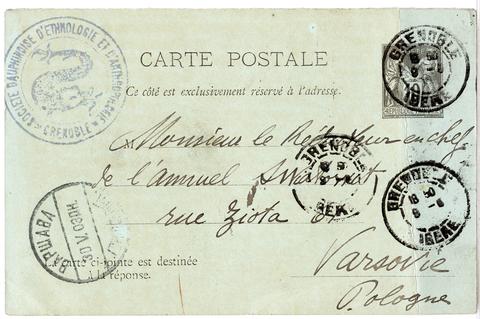 SOCIÉTÉ DAUPHINOISE D'ETHNOLOGIE ET D'ANTHROPOLOGIE
GRENOBLE
CARTE POSTALE
Ce côté est exclusivement réservé à l'adresse.
GRENOBLE
ISERE
Monsieur le Rédacteur en chef
de l'annuel
rue Złota
Varsovie
Pologne
GRENOBLE
GRENOBLE
ISERE
ВАРШАВА
La carte ci-jointe est destinée
à la réponse.